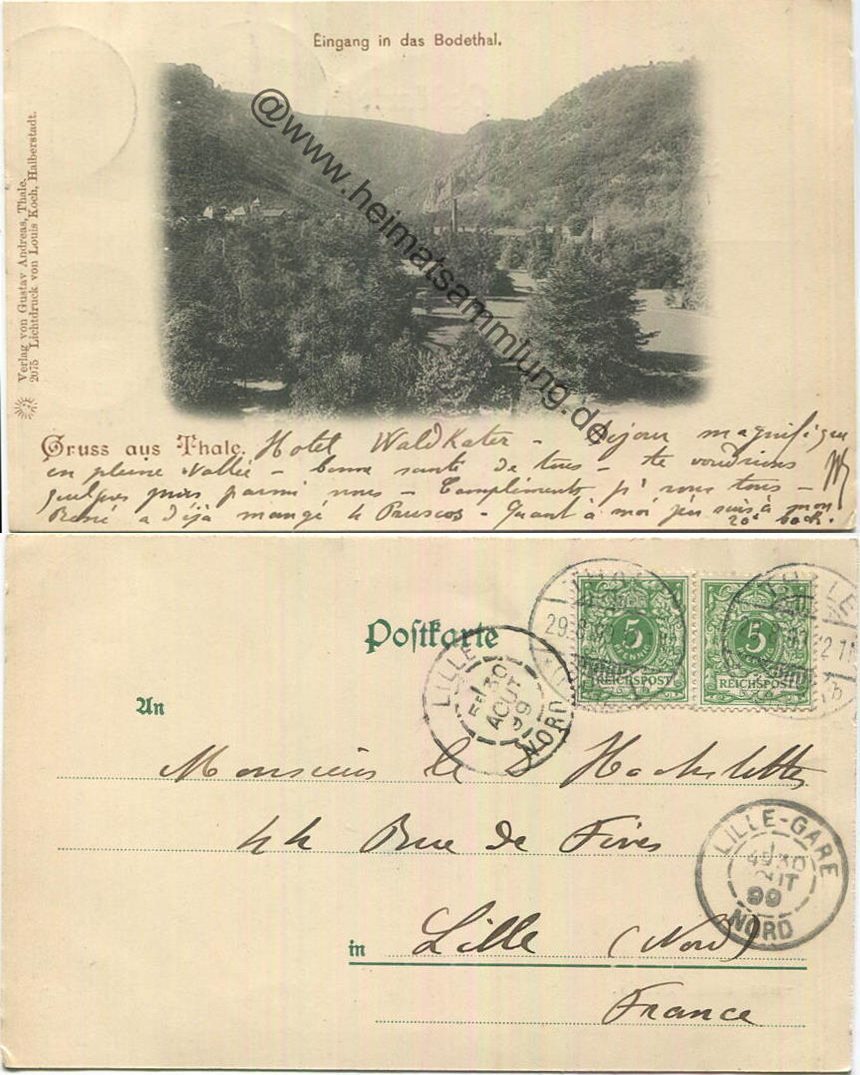 Eingang in das Bodethal.
@www.heimatsammlung.de
Verlag von Gustav Andreas, Thale.
2075 Lichtdruck von Louis Koch, Halberstadt.
Gruss aus Thale. Hotel WaldKater - Séjour magnifique
en pleine vallée - bonne santé de tous - te voudrions
quelques jours parmi nous - Compliments pr vous tous -
René a déjà mangé 4 - Quant à moi j'en suis à mon
20e bock.
Postkarte
LILLE
30
AOUT
99
NORD
THALE
29.8.99
5
REICHSPOST
5
REICHSPOST
THALE
An
Monsieur le Dr Hochstetter
44 Rue de Fives
LILLE-GARE
30
99
NORD
in Lille (Nord)
France